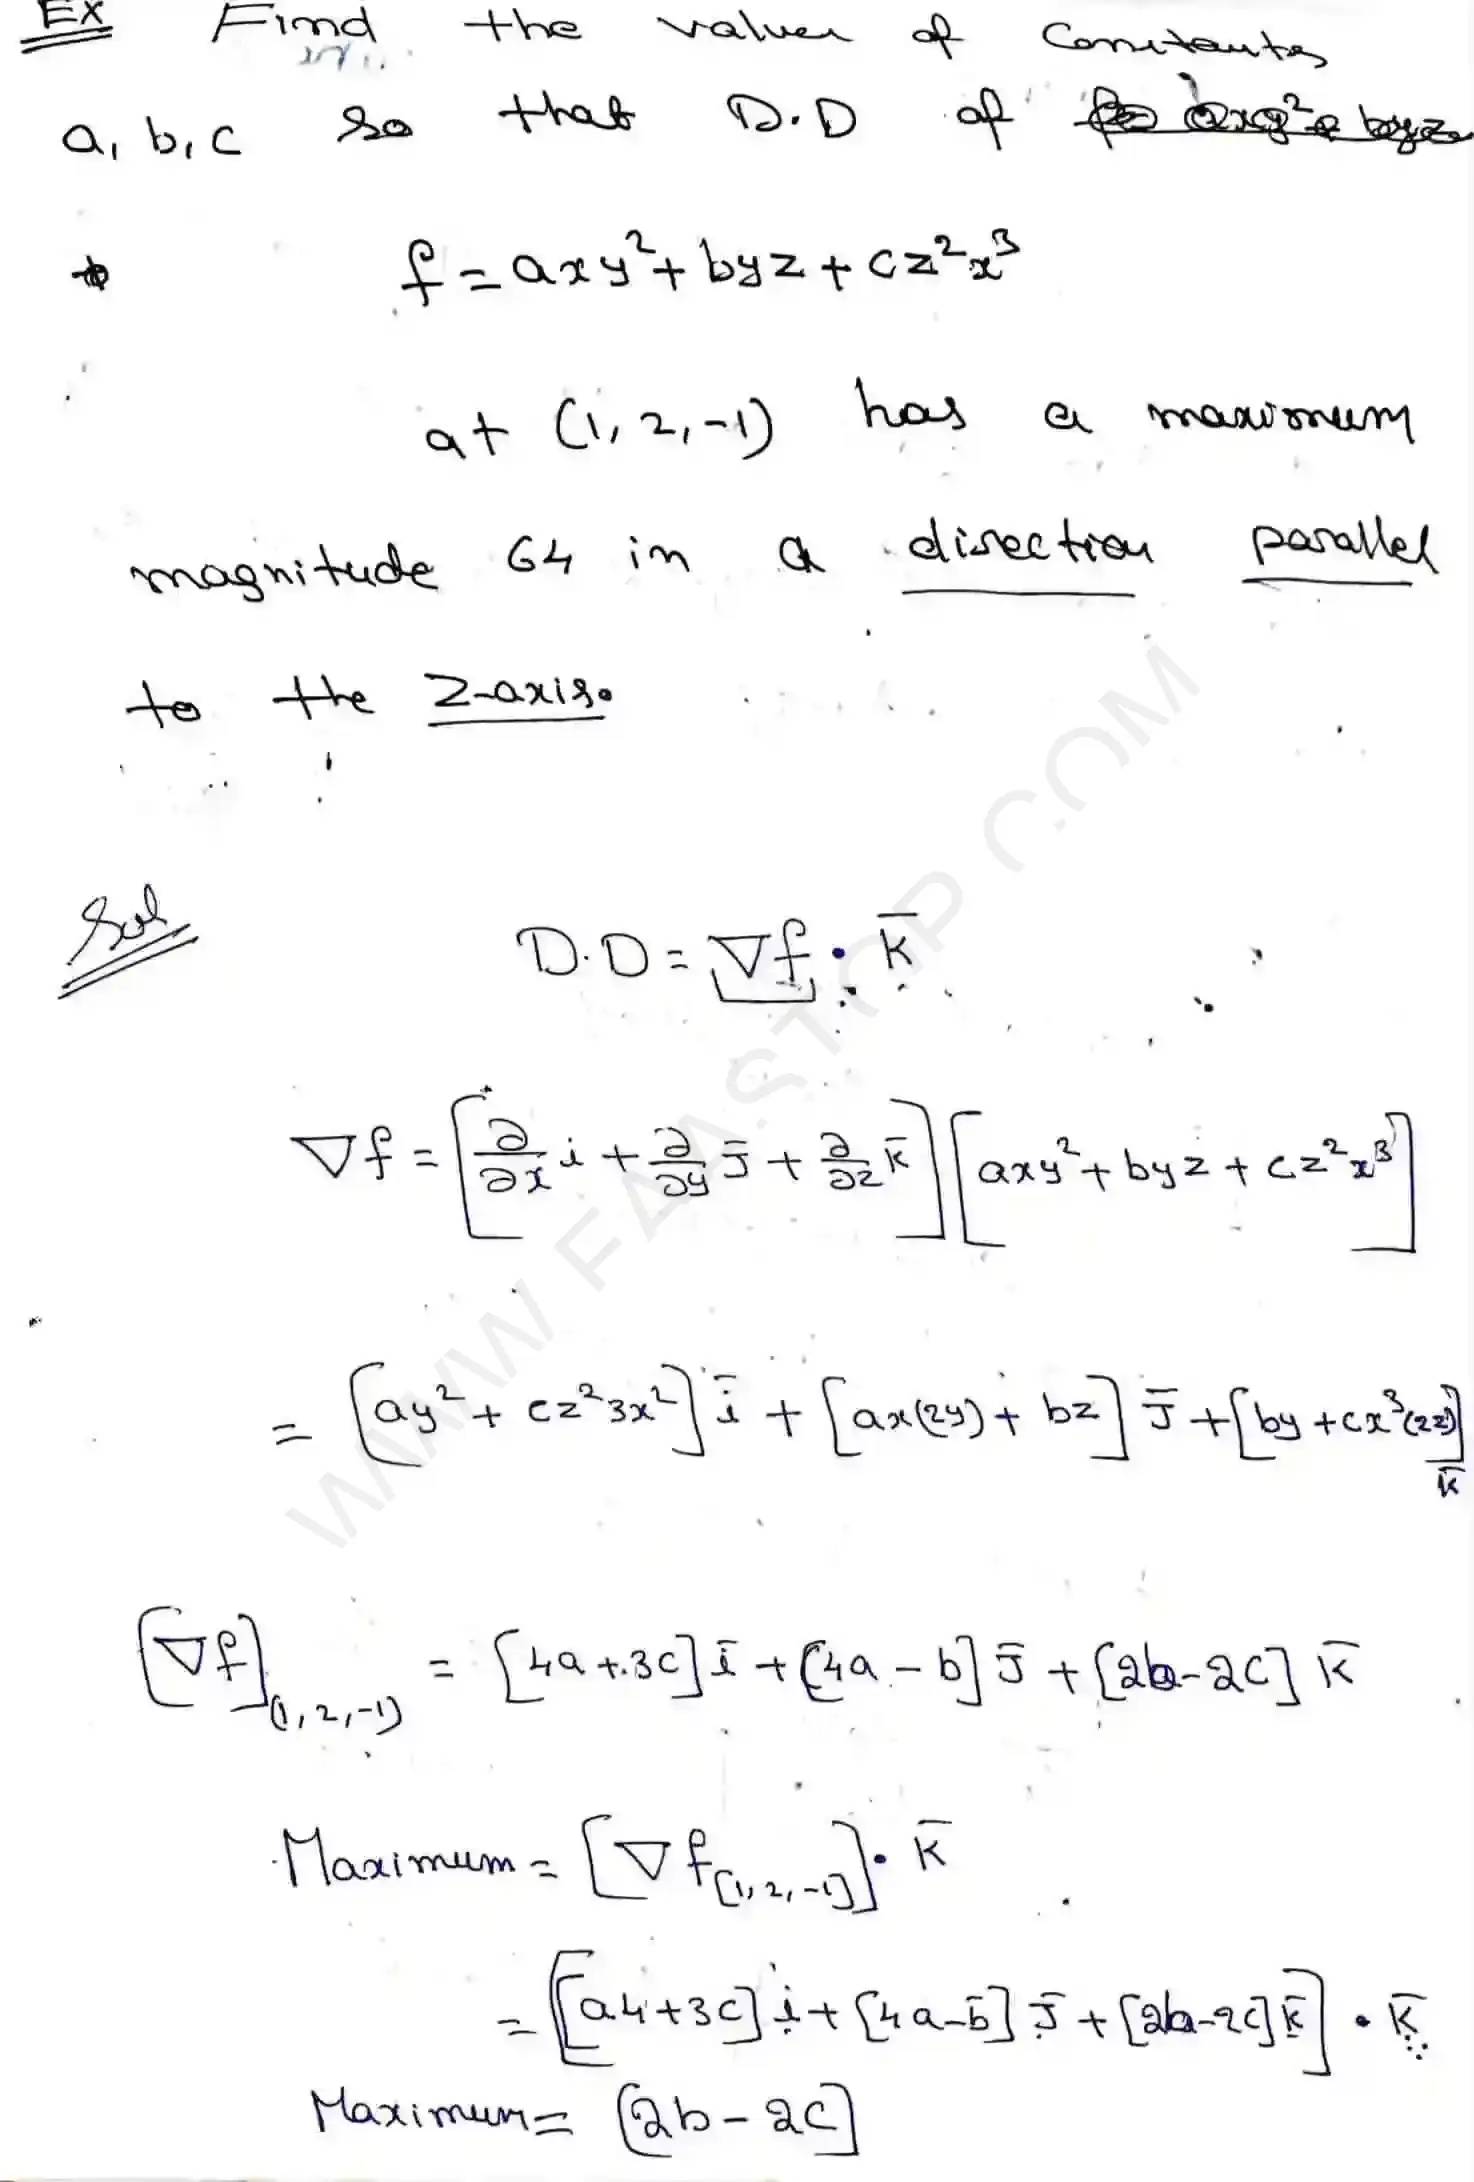 Ex Find the values of constants
a, b, c so that D.D of axy² byz
f = axy² + byz + cz²x³
at (1, 2, -1) has a maximum
magnitude 64 in a direction parallel
to the Z-axis.
Sol D.D = ∇f · k̄
∇f = [∂/∂x i + ∂/∂y j̄ + ∂/∂z k̄] [axy² + byz + cz²x³]
= [ay² + cz²3x²] ī + [ax(2y) + bz] j̄ + [by + cx³(2z)] k̄
[∇f](1, 2, -1) = [4a + 3c] ī + [4a - b] j̄ + [2b - 2c] k̄
Maximum = [∇f[1, 2, -1]] · k̄
= [[a4 + 3c] i + [4a - b] j̄ + [2b - 2c] k̄] · k̄
Maximum = [2b - 2c]
WWW.FAASTOP.COM